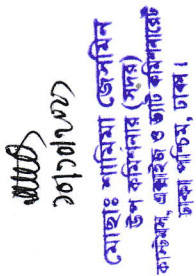 মোছাঃ শামিমা জেসমিন
উপ কমিশনার (সদর)
কাস্টমস, এক্সাইজ ও ভ্যাট কমিশনারেট
ঢাকা পশ্চিম, ঢাকা।